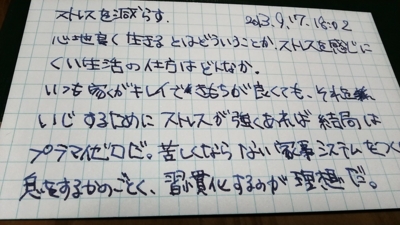 ストレスを減らす. 2023.9.17. 18:02
心地良く生きるとはどういうことか.ストレスを感じに
くい生活の仕方はどんなか.
いつも家がキレイできもちが良くても、それを
いじするためにストレスが強くあれば結局は
プラマイゼロだ。苦しくならない家事システムをつく
息をするかのごとく、習慣化するのが理想だ。